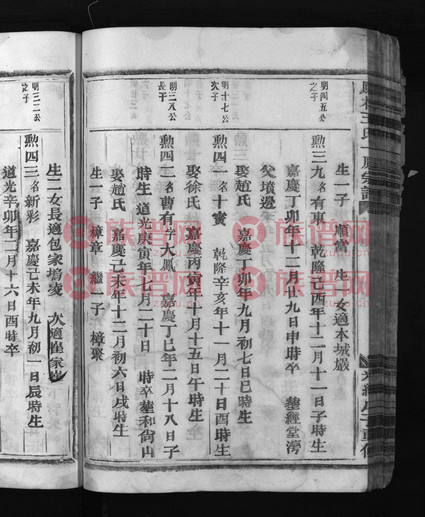 生一子 順當 生一女適本城嚴
明四五公之子
勲三九 名有東 乾隆己酉年十二月十一日子時生
嘉慶丁卯年十二月廿九日申時卒 塟經堂湾
父墳邊
娶趙氏 嘉慶丁卯年九月初七日巳時生
明十七公次子
勲四一 名十寳 乾隆辛亥年十一月二十日酉時生
娶徐氏 嘉慶丙寅年十月十五日午時生
明三八公長子
勲四二 名曹有 大鳳 嘉慶丁巳年二月十八日子
時生 道光庚寅年七月二十日 時卒 塟和尚山
娶趙氏 嘉慶己未年十二月初六日戌時生
生一子 樟章 繼一子 樟聚
生二女長適包家塝凌 次適崔家
明三二公之子
勲四三 名新彩 嘉慶己未年九月初一日辰時生
道光辛卯年二月十六日酉時卒
族谱网
族谱网
族谱网